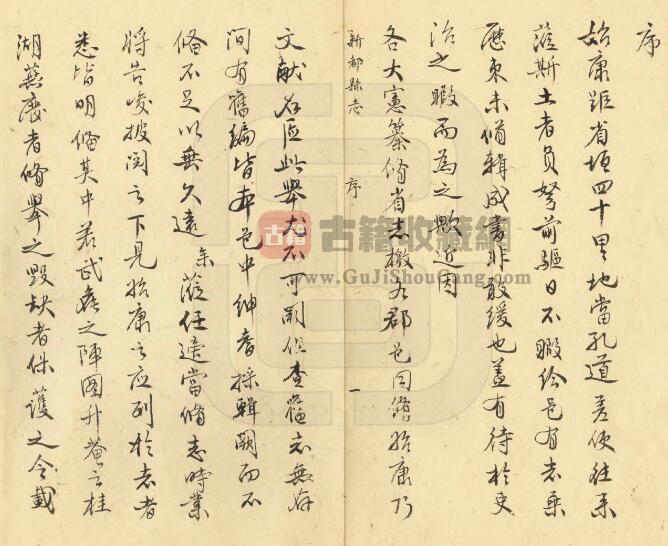 序
始康距省垣四十里地當孔道差使往来
蒞斯土者負弩前驅日不暇给邑有志乘
歷来未修輯成書非敢緩也盖有待於吏
治之暇而為之歟近因
各大憲纂修省志檄各郡邑同修始康乃
新都縣志
序
一
文献名區此舉尤不可闕但查舊志無存
间有舊编皆本邑中绅耆採輯闕而不
俻不足以垂久遠余蒞任適當修志時業
将告峻披阅之下見始康之应列於志者
悉皆明俻其中若武矦之陣圖升菴之桂
湖蕪廢者修舉之毁缺者保護之今載
古籍
古籍收藏網
www.GuJiShouCang.com